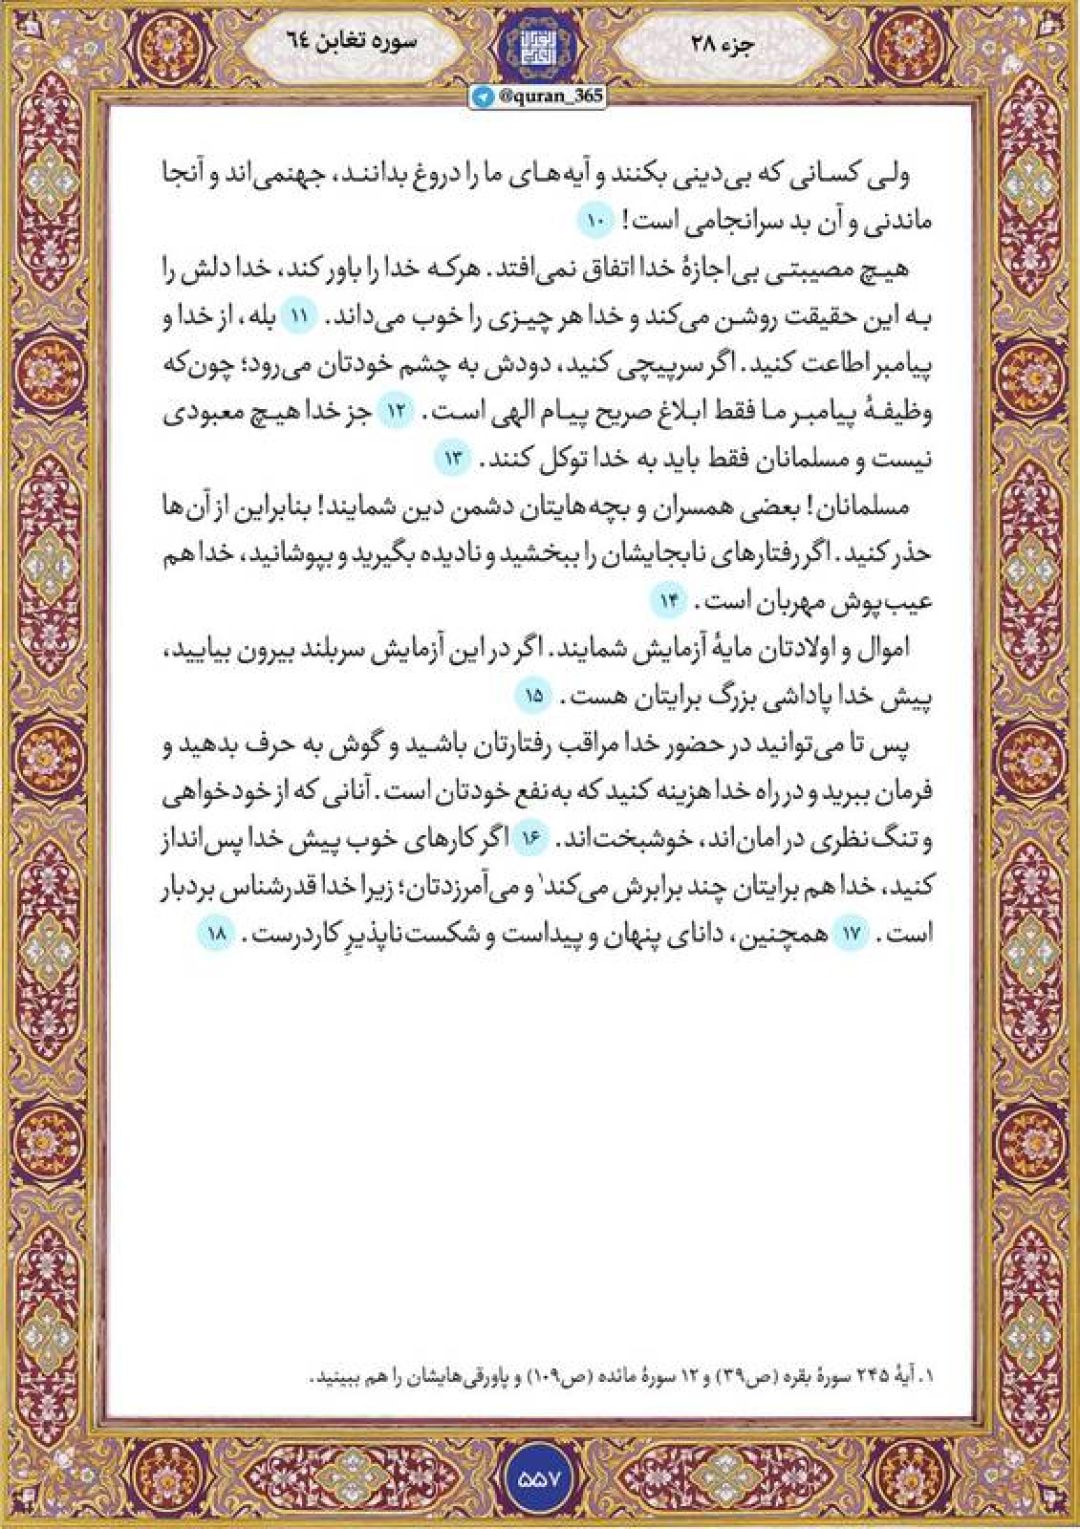 جزء ۲۸
سوره تغابن ٦٤
@quran_365
ولی کسانی که بی‌دینی بکنند و آیه‌های ما را دروغ بدانند، جهنمی‌اند و آنجا
ماندنی و آن بد سرانجامی است! ۱۰
هیچ مصیبتی بی‌اجازهٔ خدا اتفاق نمی‌افتد. هرکه خدا را باور کند، خدا دلش را
به این حقیقت روشن می‌کند و خدا هر چیزی را خوب می‌داند. ۱۱ بله، از خدا و
پیامبر اطاعت کنید. اگر سرپیچی کنید، دودش به چشم خودتان می‌رود؛ چون‌که
وظیفهٔ پیامبر ما فقط ابلاغ صریح پیام الهی است. ۱۲ جز خدا هیچ معبودی
نیست و مسلمانان فقط باید به خدا توکل کنند. ۱۳
مسلمانان! بعضی همسران و بچه‌هایتان دشمن دین شمایند! بنابراین از آن‌ها
حذر کنید. اگر رفتارهای نابجایشان را ببخشید و نادیده بگیرید و بپوشانید، خدا هم
عیب‌پوش مهربان است. ۱۴
اموال و اولادتان مایهٔ آزمایش شمایند. اگر در این آزمایش سربلند بیرون بیایید،
پیش خدا پاداشی بزرگ برایتان هست. ۱۵
پس تا می‌توانید در حضور خدا مراقب رفتارتان باشید و گوش به حرف بدهید و
فرمان ببرید و در راه خدا هزینه کنید که به‌نفع خودتان است. آنانی که از خودخواهی
و تنگ‌نظری در امان‌اند، خوشبخت‌اند. ۱۶ اگر کارهای خوب پیش خدا پس‌انداز
کنید، خدا هم برایتان چند برابرش می‌کند۱ و می‌آمرزدتان؛ زیرا خدا قدرشناس بردبار
است. ۱۷ همچنین، دانای پنهان و پیداست و شکست‌ناپذیرِ کاردرست. ۱۸
۱. آیهٔ ۲۴۵ سورهٔ بقره (ص۳۹) و ۱۲ سورهٔ مائده (ص۱۰۹) و پاورقی‌هایشان را هم ببینید.
۵۵۷